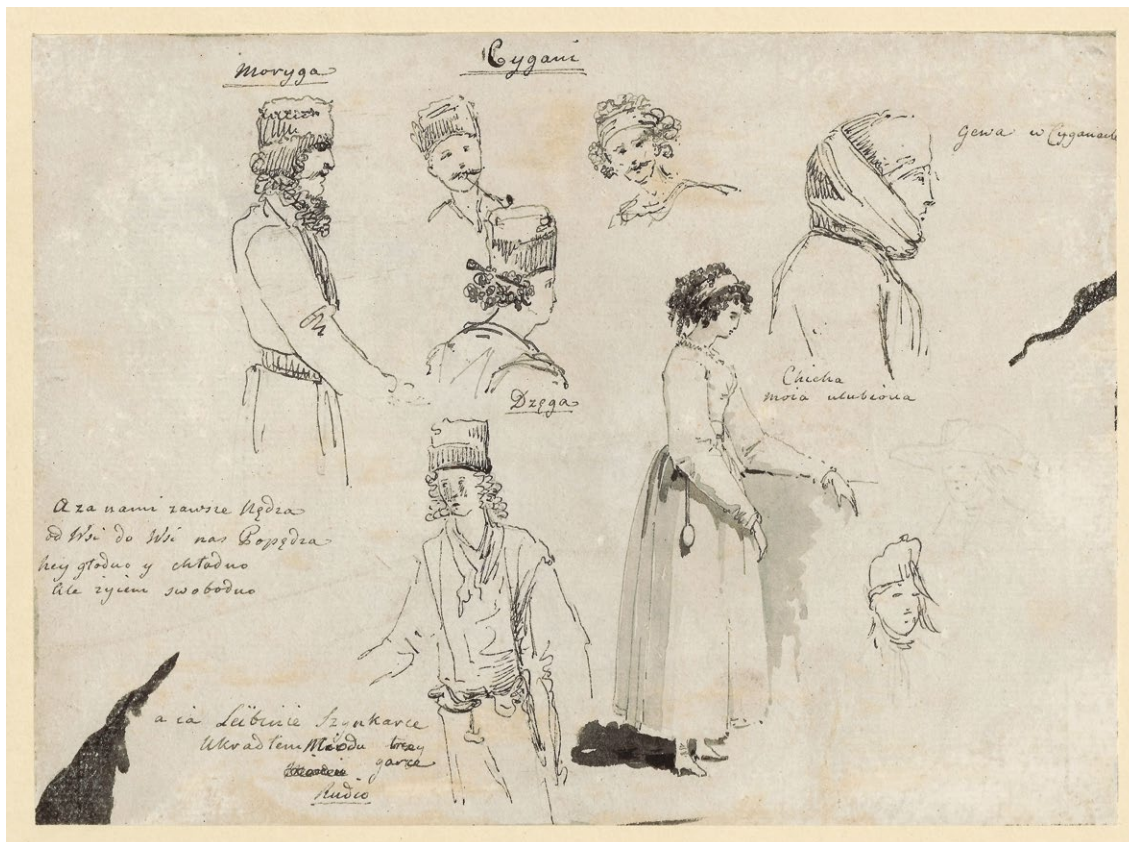 Cygani
Moryga
Gewa w Cyganach
Dzęga
Chicha
moia ulubiona
A za nami zawsze Nędza
od Wsi do Wsi nas Popędza
hey głodno y chłodno
Ale zyiem swobodno
a ia Leibinie Szynkarce
Ukradłem Miodu trzy
garce
Rudio